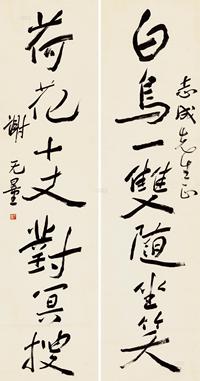 白鳥一雙隨坐笑
志成先生正
荷花十丈對冥搜
謝无量